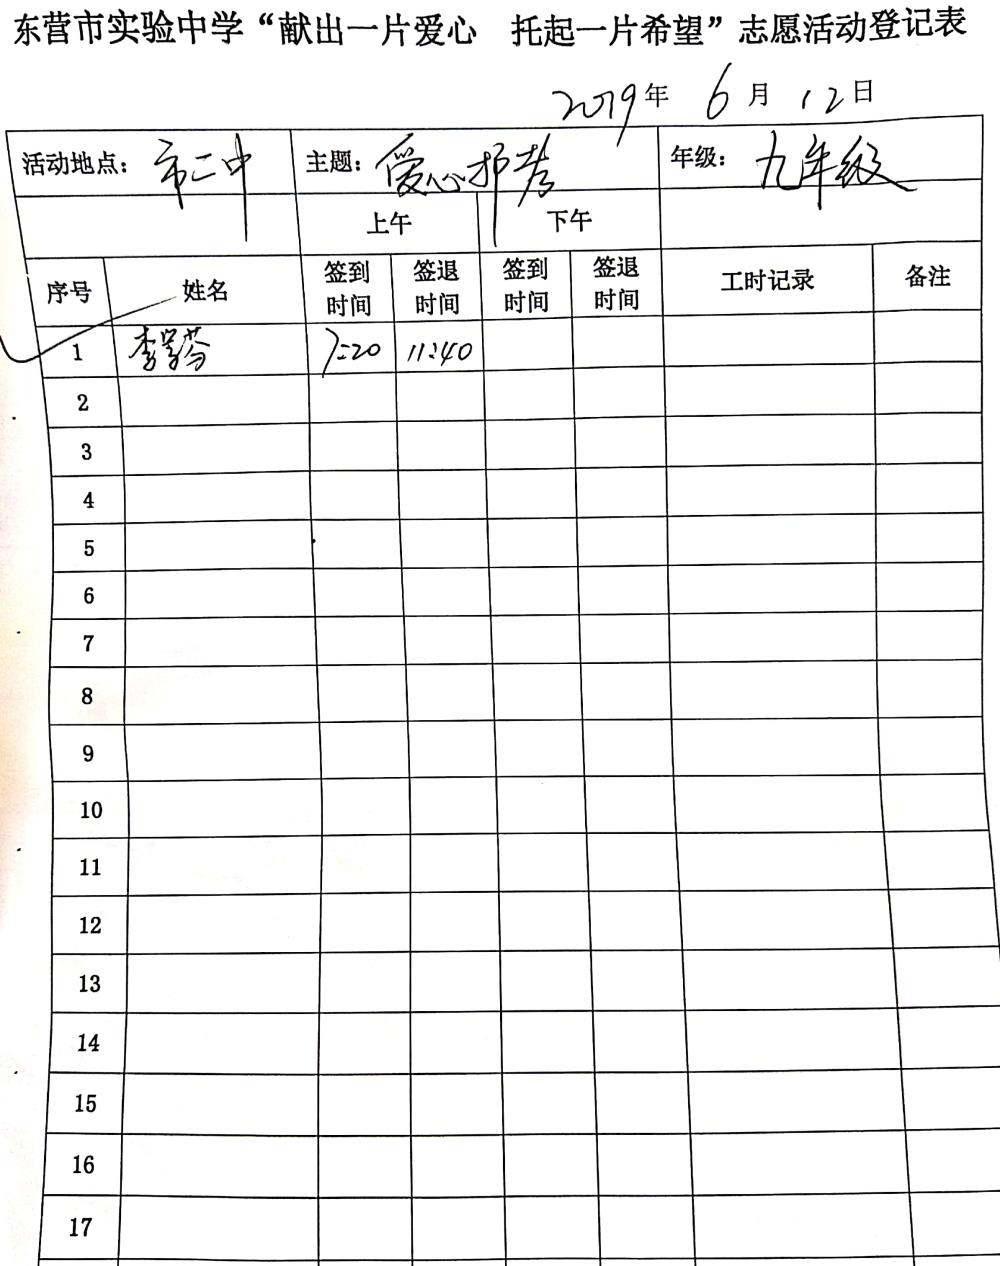 东营市实验中学“献出一片爱心 托起一片希望”志愿活动登记表
2019年 6月 12日
活动地点：市二中 主题：爱心护考 年级：九年级
上午 下午
序号 姓名 签到时间 签退时间 签到时间 签退时间 工时记录 备注
1 李学芬 7:20 11:40
2
3
4
5
6
7
8
9
10
11
12
13
14
15
16
17